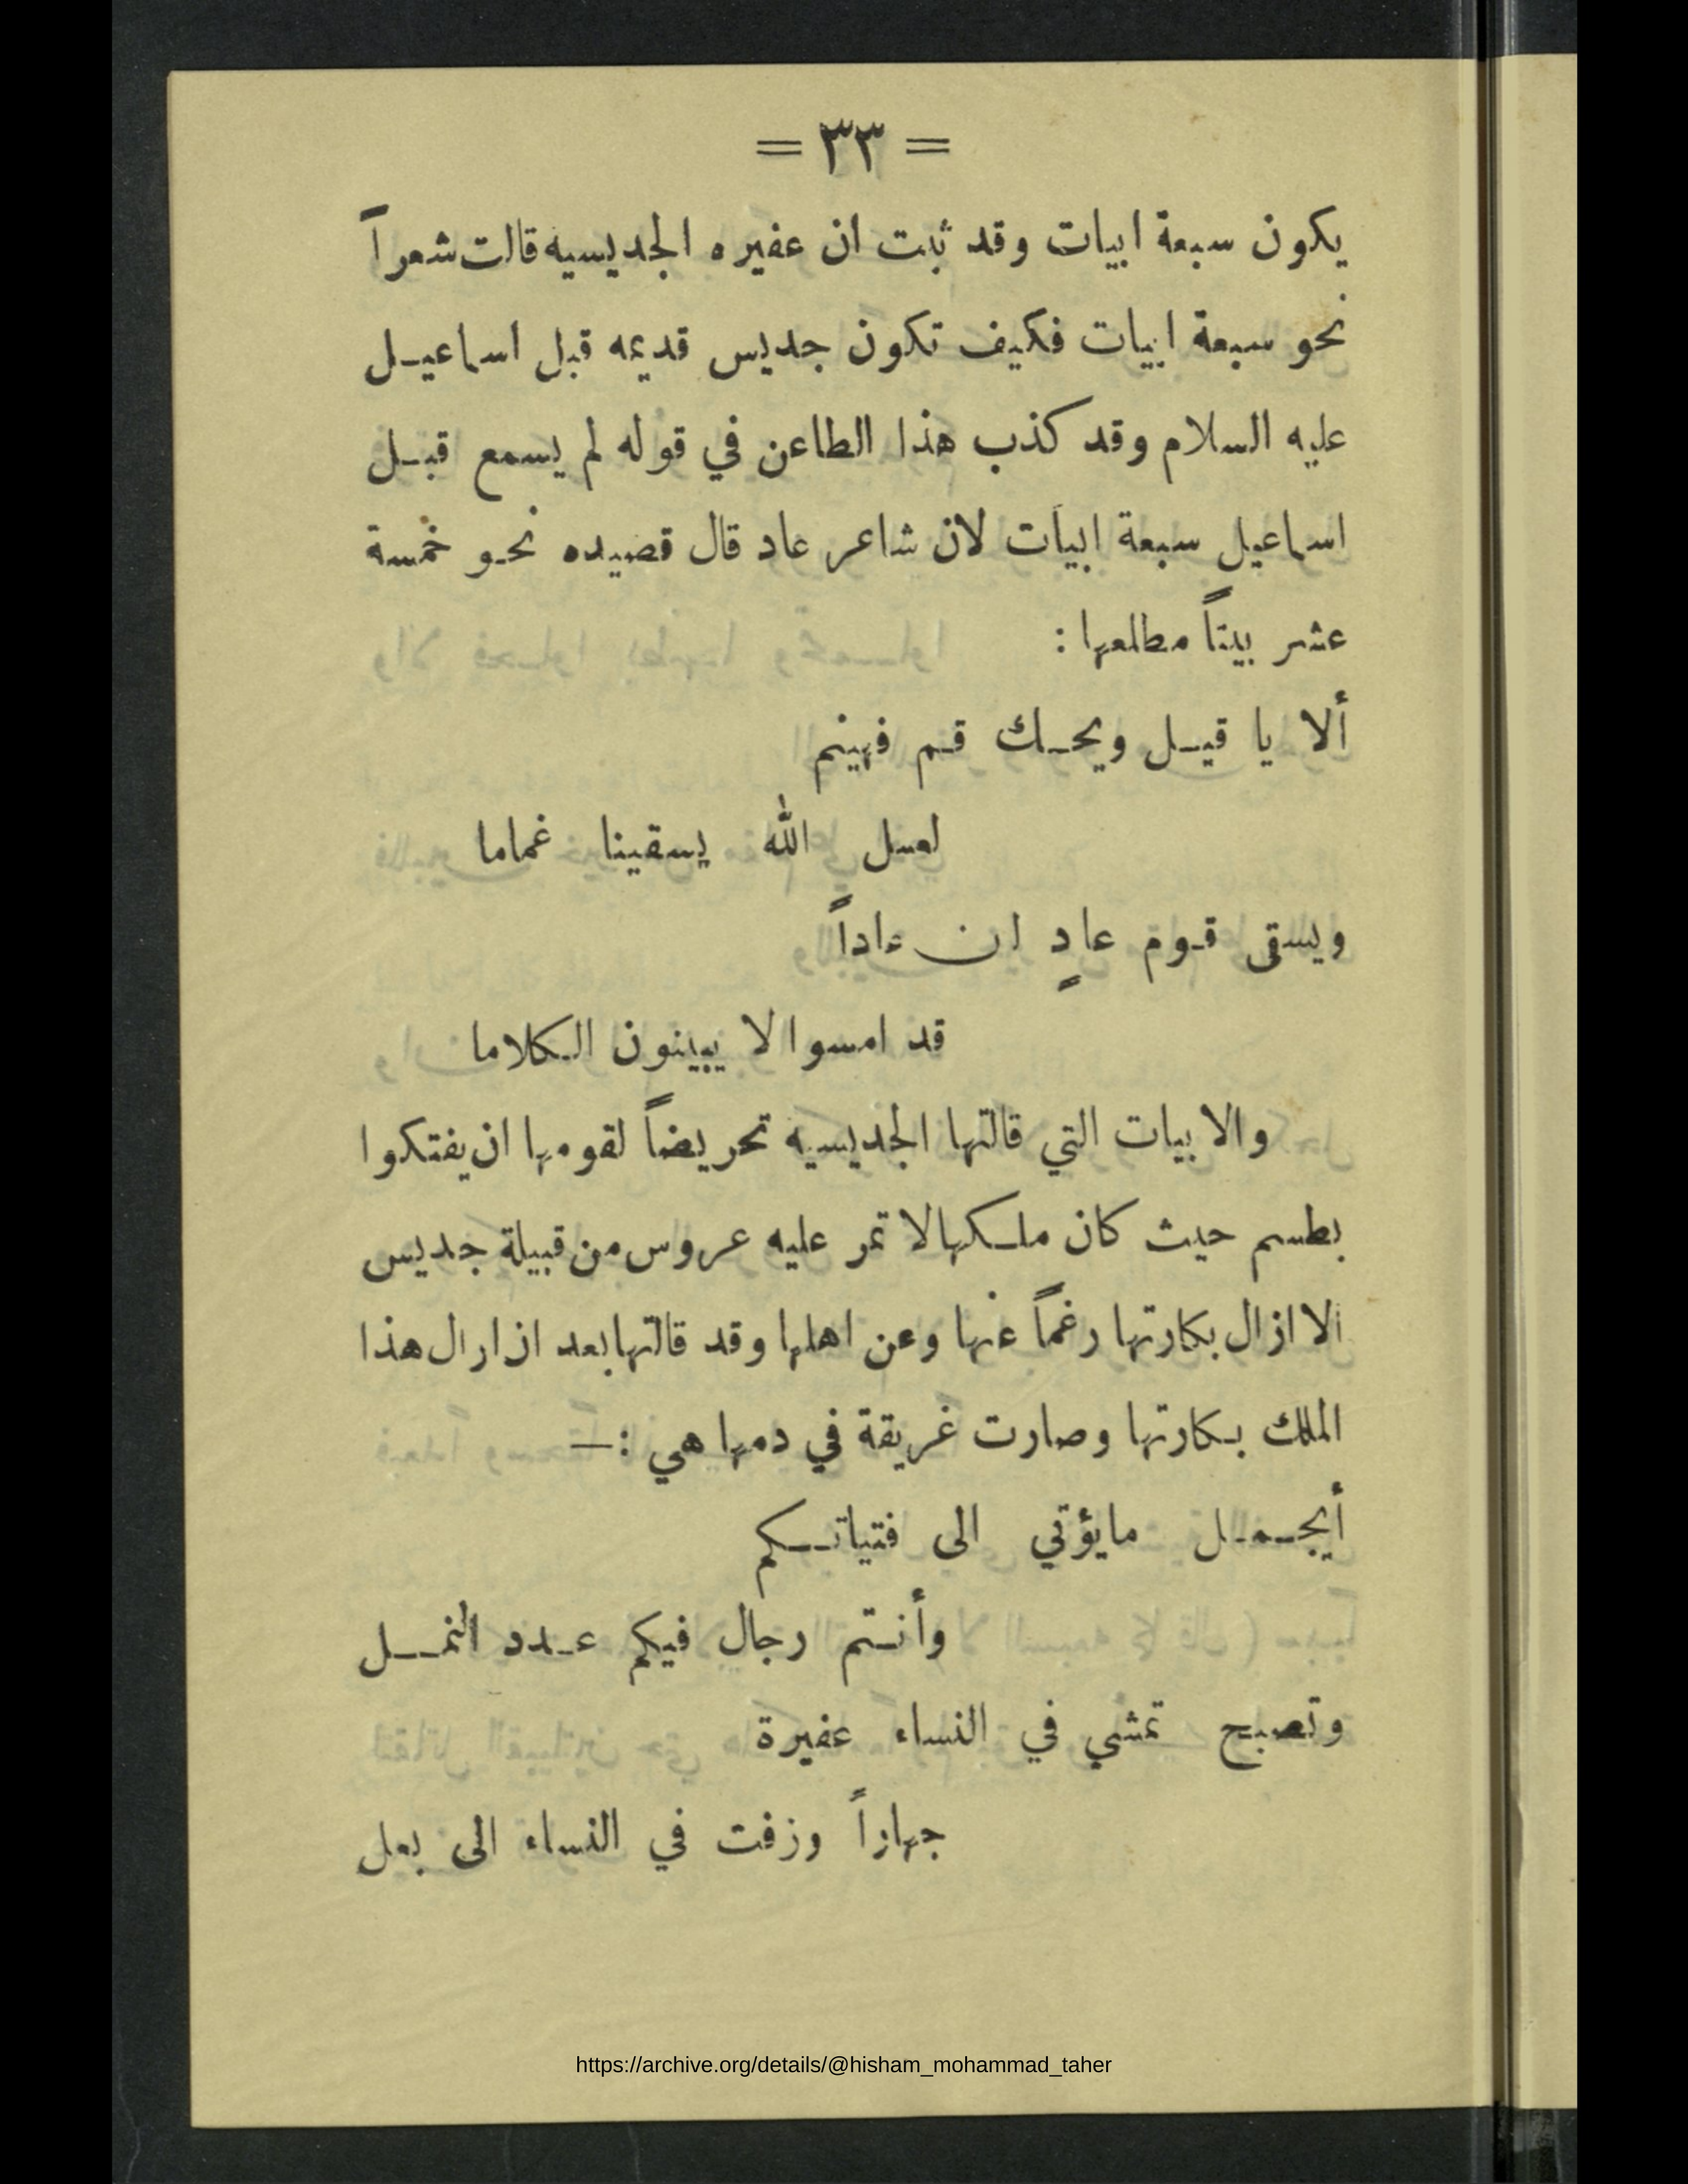 = ٣٣ =
يكون سبعة ابيات وقد ثبت ان عفيره الجديسيه قالت شعراً
نحو سبعة ابيات فكيف تكون جديس قديمه قبل اسماعيل
عليه السلام وقد كذب هذا الطاعن في قوله لم يسمع قبل
اسماعيل سبعة ابيات لان شاعر عاد قال قصيده نحو خمسة
عشر بيتاً مطلعها :
ألا يا قيل ويحك قم فهينم
لعل الله يسقينا غماما
ويسقى قوم عادٍ ان عاداً
قد امسوا لا يبينون الكلاما
والابيات التي قالتها الجديسيه تحريضاً لقومها ان يفتكوا
بطسم حيث كان ملكها لا تمر عليه عروس من قبيلة جديس
الا ازال بكارتها رغماً عنها وعن اهلها وقد قالتها بعد ازارال هذا
الملك بكارتها وصارت غريقة في دمها هي :—
أيجمل مايؤتي الى فتياتكم
وأنتم رجال فيكم عدد النمل
وتصبح تمشي في النساء عفيرة
جهاراً وزفت في النساء الى بعل
https://archive.org/details/@hisham_mohammad_taher